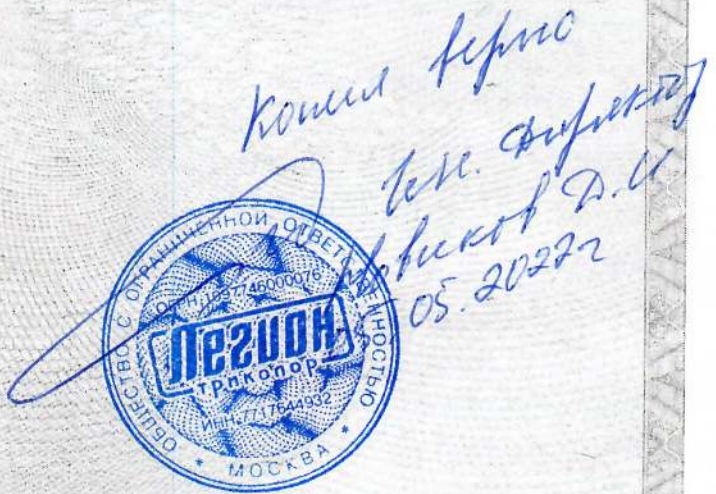 Копия верно
Ген. директор
Новиков Д.И
05.2022г
ОБЩЕСТВО С ОГРАНИЧЕННОЙ ОТВЕТСТВЕННОСТЬЮ
ОГРН:1097746000076
Легион
трикопор
ИНН:7717644932
* МОСКВА *